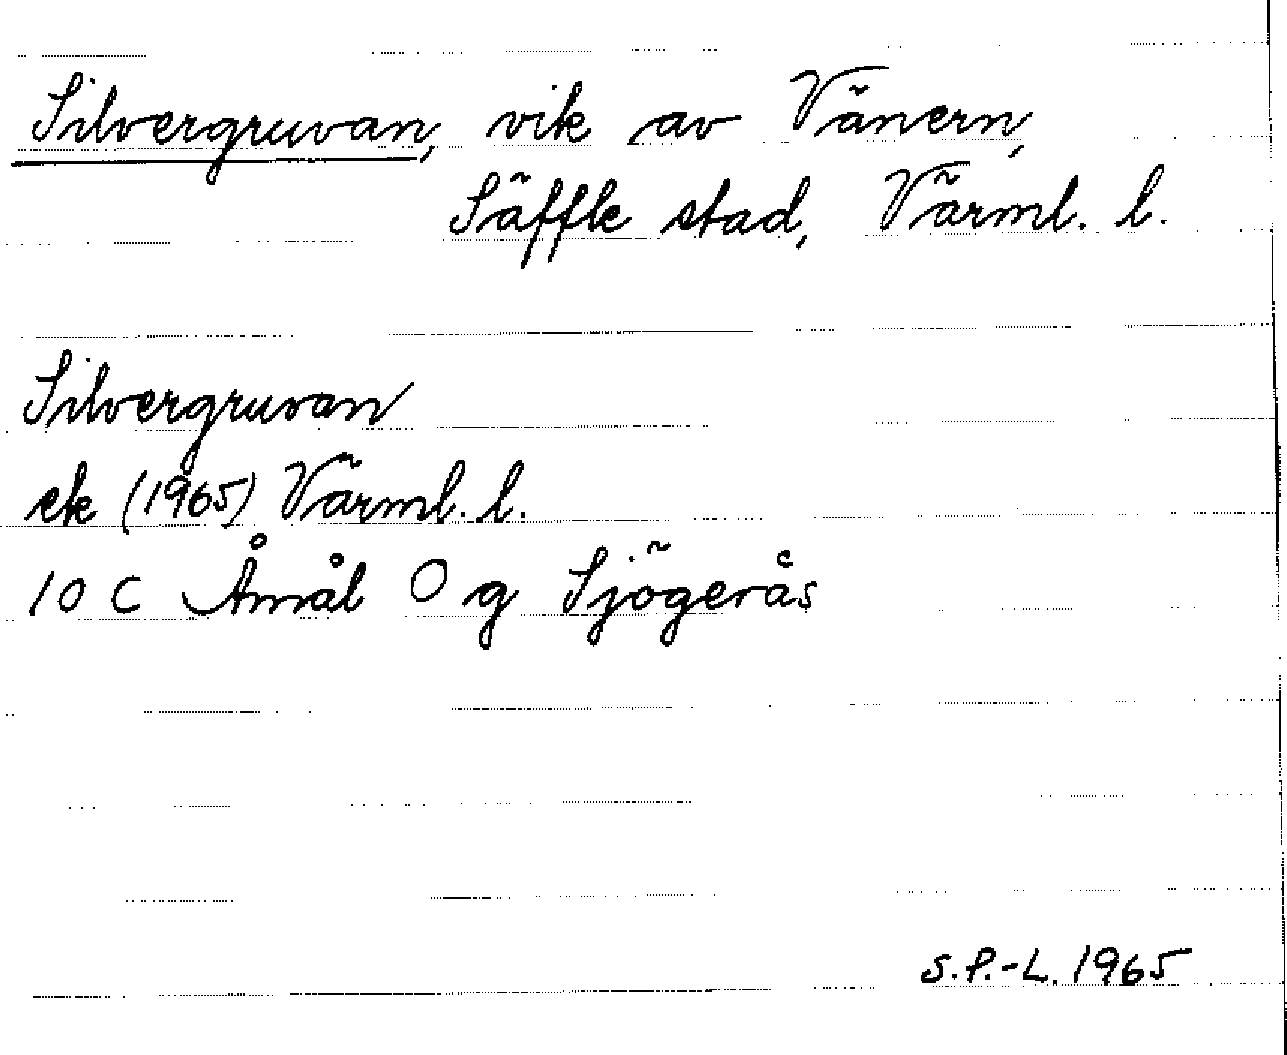 Silvergruvan, vik av Vänern,
Säffle stad, Värml. l.
Silvergruvan
ek (1965) Värml. l.
10 C Åmål O g Sjögerås
S.P.-L. 1965